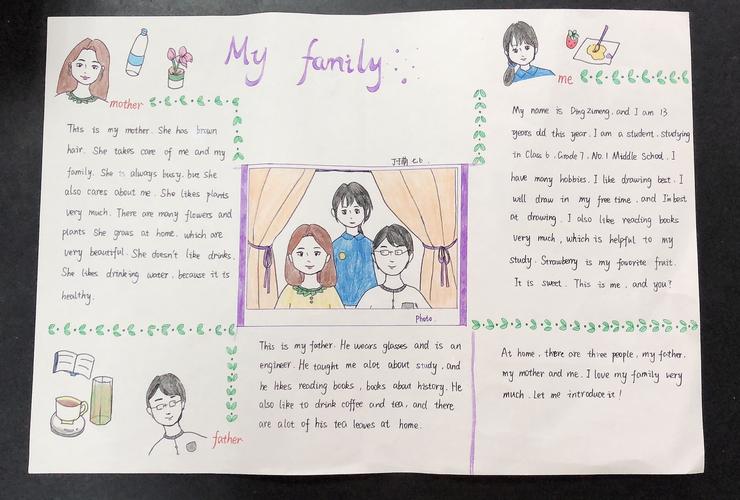 My family
mother
This is my mother. She has brown
hair. She takes care of me and my
family. She is always busy. but she
also cares about me. She likes plants
very much. There are many flowers and
plants She grows at home. which are
very beautiful. She doesn't like drinks.
She likes drinking water. because it is
healthy.
me
My name is Ding Zimeng. and I am 13
years old this year. I am a student. studying
in Class 6. Grade 7. No.1 Middle School. I
have many hobbies. I like drawing best. I
will draw in my free time. and I'm best
at drawing. I also like reading books
very much, which is helpful to my
study. Strawberry is my favorite fruit.
It is sweet. This is me. and you?
Photo.
father
This is my father. He wears glasses and is an
engineer. He taught me alot about study. and
he likes reading books, books about history. He
also like to drink coffee and tea, and there
are alot of his tea leaves at home.
At home, there are three people, my father.
my mother and me. I love my family very
much. Let me introduce it!